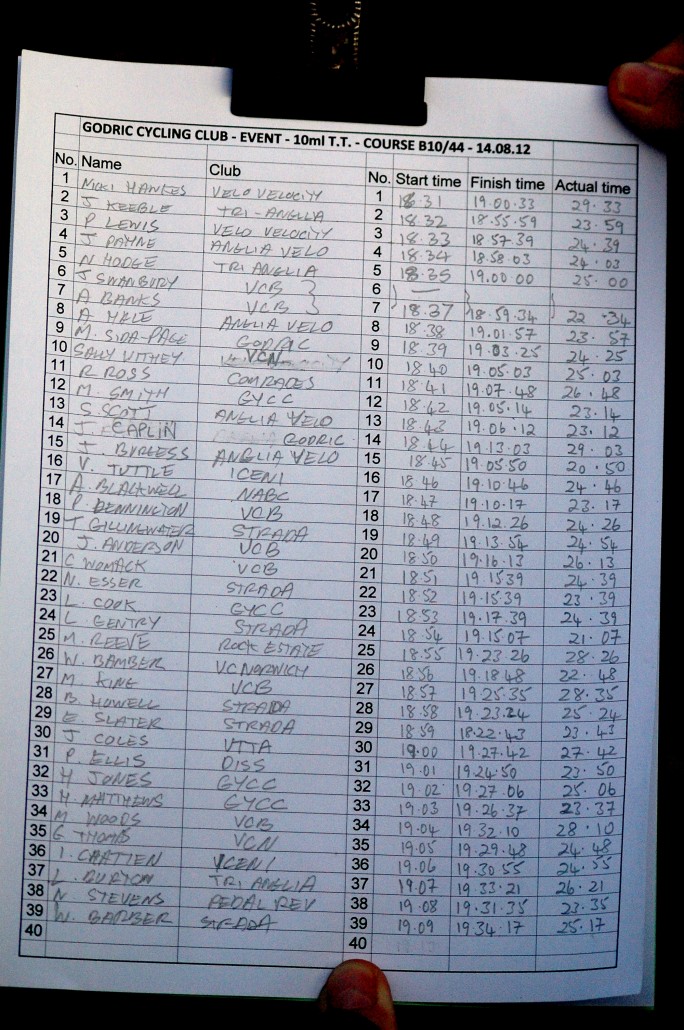 GODRIC CYCLING CLUB - EVENT - 10ml T.T. - COURSE B10/44 - 14.08.12
No. Name Club No. Start time Finish time Actual time
1 NICKI HAWKES VELO VELOCITY 1 18.31 19.00.33 29.33
2 J KEEBLE TRI-ANGLIA 2 18.32 18.55.59 23.59
3 P LEWIS VELO VELOCITY 3 18.33 18 57.39 24.39
4 J PAYNE ANGLIA VELO 4 18.34 18.58.03 24.03
5 N HODGE TRI ANGLIA 5 18.35 19.00.00 25.00
6 J SWANBURY VCB 6
7 A BANKS VCB 7 18.37 18.59.34 22.34
8 A HALE ANGLIA VELO 8 18.38 19.01.57 23.57
9 M. SIDA-PAGE GODRIC 9 18.39 19.03.25 24.25
10 SALLY WITHEY VCN 10 18.40 19.05.03 25.03
11 R ROSS COMRADES 11 18.41 19.07.48 26.48
12 M. SMITH GYCC 12 18.42 19.05.14 23.14
13 S. SCOTT ANGLIA VELO 13 18.43 19.06.12 23.12
14 J. CAPLIN GODRIC 14 18.44 19.13.03 29.03
15 J. BURGESS ANGLIA VELO 15 18.45 19.05.50 20.50
16 V. TUTTLE ICENI 16 18.46 19.10.46 24.46
17 A. BLACKWELL NABC 17 18.47 19.10.17 23.17
18 P. BENNINGTON VCB 18 18.48 19.12.26 24.26
19 T GILLINGWATER STRADA 19 18.49 19.13.54 24.54
20 J. ANDERSON VCB 20 18.50 19.16.13 26.13
21 C WOMACK VCB 21 18.51 19.1539 24.39
22 N. ESSER STRADA 22 18.52 19.15.39 23.39
23 L. COOK GYCC 23 18.53 19.17.39 24.39
24 L. GENTRY STRADA 24 18.54 19.15.07 21.07
25 M. REEVE ROCK ESTATE 25 18.55 19.23.26 28.26
26 W. BAMBER VC NORWICH 26 18.56 19.18 48 22.48
27 M. KING VCB 27 18.57 19.25.35 28.35
28 B. HOWELL STRADA 28 18.58 19.23.24 25.24
29 E. SLATER STRADA 29 18 59 18.22.43 23.43
30 J COLES VTTA 30 19.00 19.27.42 27.42
31 P. ELLIS DISS 31 19.01 19.24.50 23.50
32 H JONES GYCC 32 19.02 19.27.06 25.06
33 H. MATTHEWS GYCC 33 19.03 19.26.37 23.37
34 M WOODS VCB 34 19.04 19.32.10 28.10
35 G THOMAS VCN 35 19.05 19.29.48 24.48
36 I. CHATTEN ICENI 36 19.06 19.30 55 24.55
37 L. BURTON TRI ANGLIA 37 19.07 19.33.21 26.21
38 N STEVENS PEDAL REV 38 19.08 19.31.35 23.35
39 W. BARBER STRADA 39 19.09 19.34.17 25.17
40 40